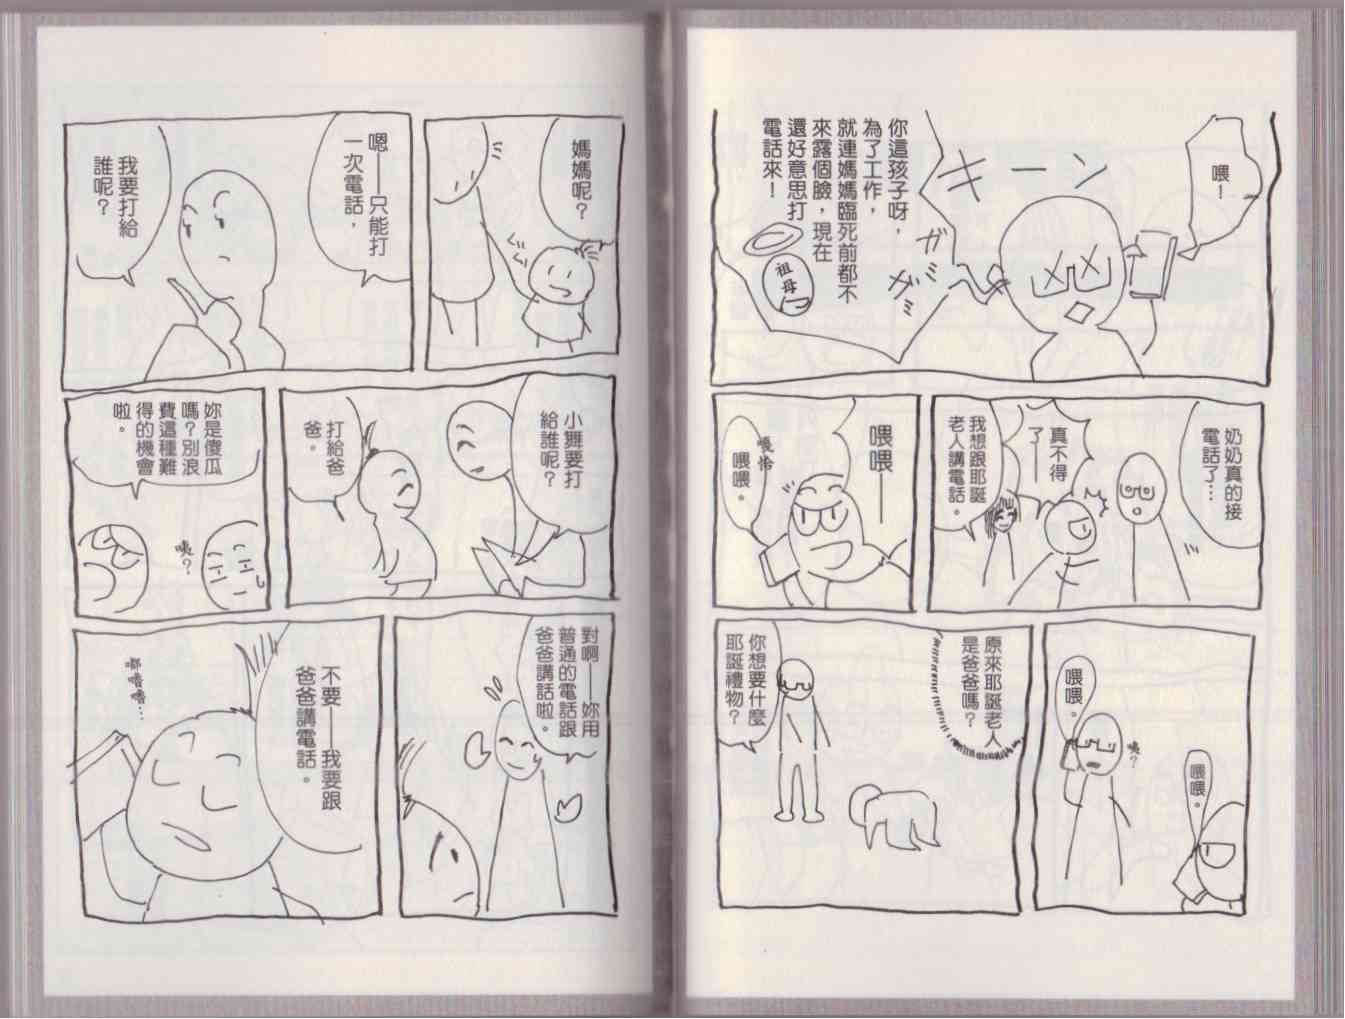 喂！
キーン
ガガミミ
你這孩子呀，
為了工作，
就連媽媽臨死前都不
來露個臉，現在
還好意思打
電話來！
祖母
奶奶真的接
電話了…
真不得
了——
我想跟耶誕
老人講電話。
喂喂——
喂喂。
喂喂。
咦？
喂喂。
原來耶誕老人
是爸爸嗎？
你想要什麼
耶誕禮物？
媽媽呢？
嗯——只能打
一次電話，
我要打給
誰呢？
小舞要打
給誰呢？
打給爸
爸。
妳是傻瓜
嗎？別浪
費這種難
得的機會
啦。
咦？
對啊——妳用
普通的電話跟
爸爸講話啦。
不要——我要跟
爸爸講電話。